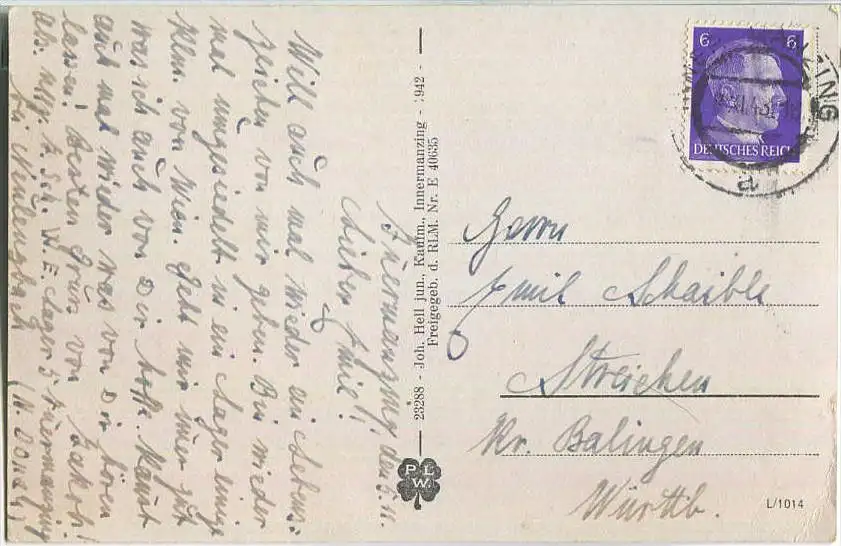 Innermanzing, den 5. 11.
Lieber Emil!
Will auch mal wieder ein Lebens-
zeichen von mir geben. Bin wieder
mal umgesiedelt in ein Lager einige
Klm. von Wien. Geht mir immer gut
was ich auch von Dir hoffe. Kannst
auch mal wieder was von Dir hören
lassen! Besten Gruß von Jakob!
W. E. Lager 5 Innermanzing
bei Neulengbach (N. Donau)
23288 - Joh. Hell jun., Kaufm., Innermanzing - 1942 -
Freigegeb. d. RLM. Nr. E 40635
PLW.
6 6
DEUTSCHES REICH
a
Herrn
Emil Schaible
Streichen
Kr. Balingen
Württb.
L/1014